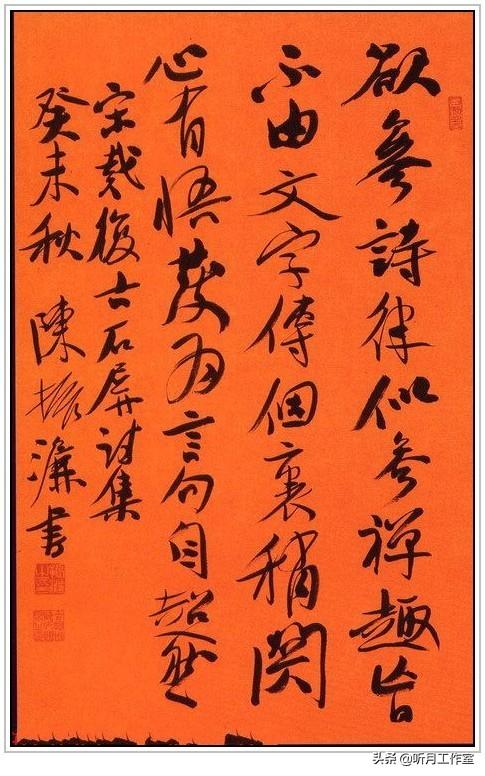 欲參詩律似參禪趣旨
不由文字傳個裏稍關
心有悟發為言句自超然
宋戴復古石屏詩集
癸未秋 陳振濂書
头条 @听月工作室